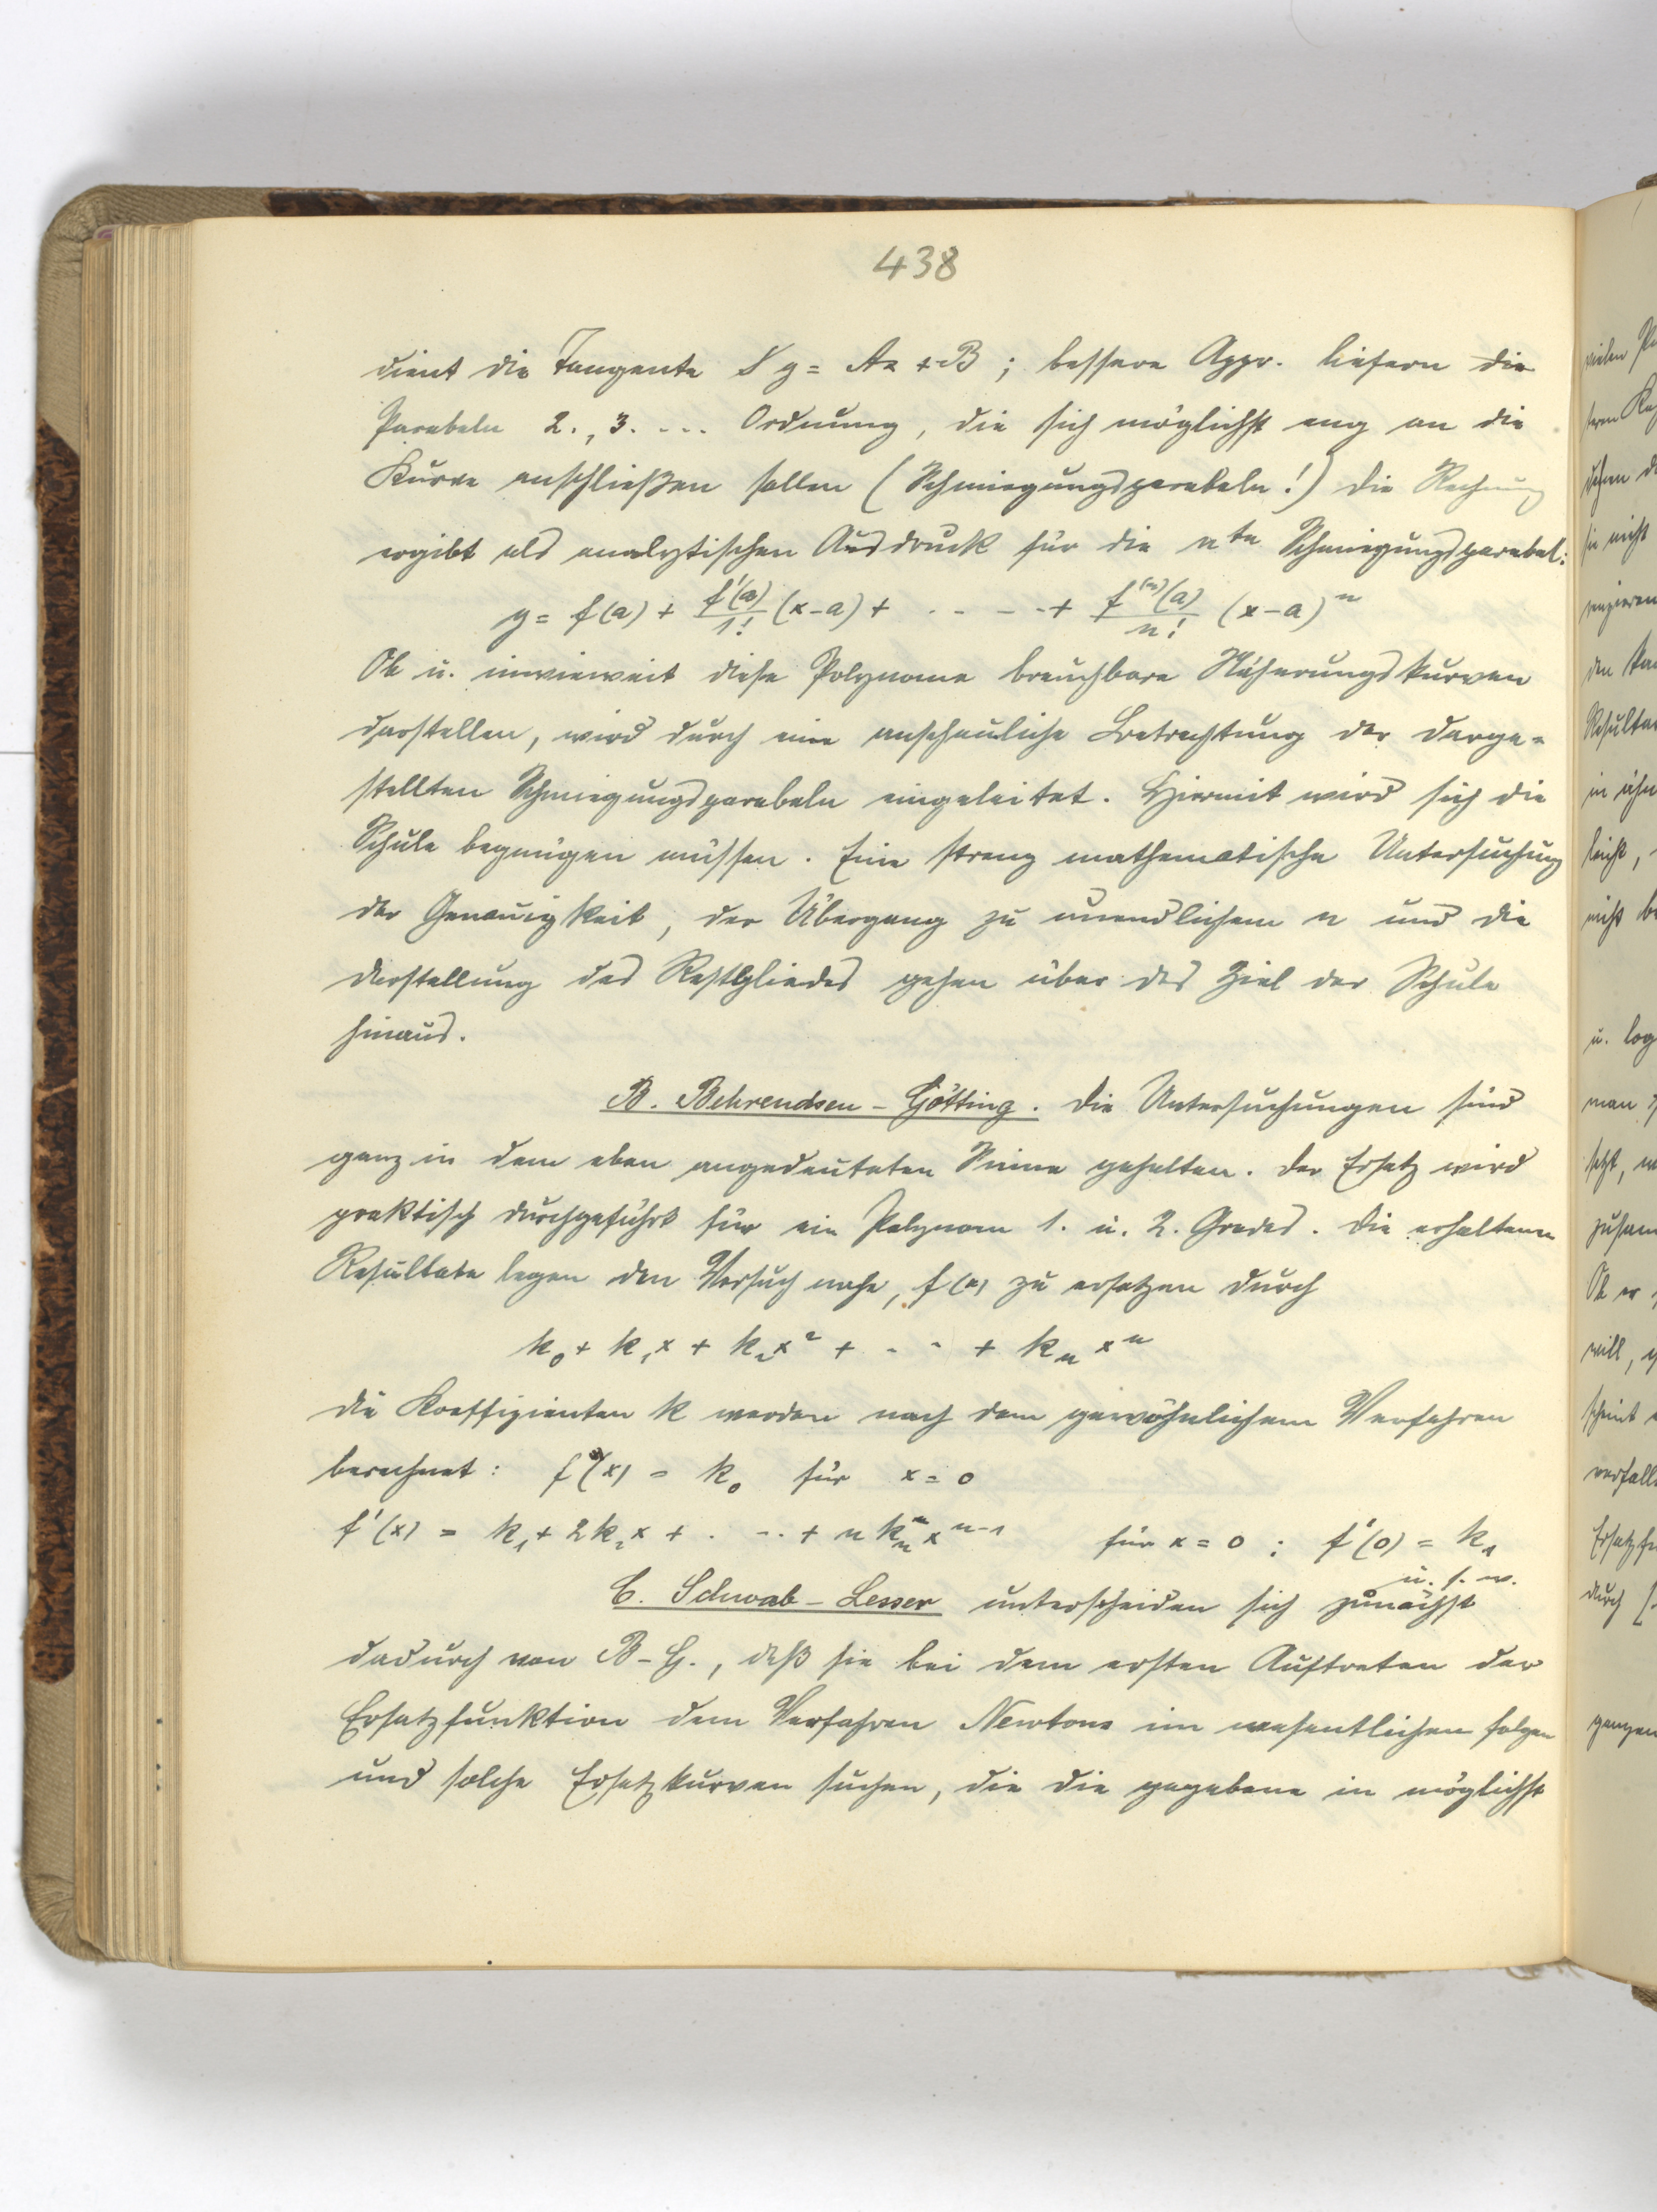 438
dient die Tangente y = Ax + B ; bessere Appr. liefern die
Parabeln 2., 3. ... Ordnung, die sich möglichst eng an die
Kurve anschließen sollen (Schmiegungsparabeln!) die Rechnung
ergibt als analytischen Ausdruck für die nte Schmiegungsparabel:
y = f(a) + f'(a)/1! (x-a) + . - - - + f^(n)(a)/n! (x-a)^n
Ob u. inwieweit diese Polynome brauchbare Näherungskurven
darstellen, wird durch eine anschauliche Betrachtung der darge=
stellten Schmiegungsparabeln eingeleitet. Hiermit wird sich die
Schule begnügen müssen. Eine streng mathematische Untersuchung
der Genauigkeit, der Übergang zu unendlichem n und die
Darstellung des Restgliedes gehen über das Ziel der Schule
hinaus.
B. Behrendsen - Götting. Die Untersuchungen sind
ganz in dem eben angedeuteten Sinne gehalten. Der Ersatz wird
praktisch durchgeführt für ein Polynom 1. u. 2. Grades. Die erhaltenen
Resultate legen den Versuch nahe, f(x) zu ersetzen durch
k₀ + k₁x + k₂x² + . - - + kₙxⁿ
die Koeffizienten k werden nach dem gewöhnlichem Verfahren
berechnet: f(x) = k₀ für x = 0
f'(x) = k₁ + 2k₂x + . - .. + n kₙ xⁿ⁻¹ für x = 0 : f'(0) = k₁
u. s. w.
C. Schwab - Lesser unterscheiden sich zunächst
dadurch von B-G., daß sie bei dem ersten Auftreten der
Ersatzfunktion dem Verfahren Newtons im wesentlichen folgen
und solche Ersatzkurven suchen, die die gegebene in möglichst